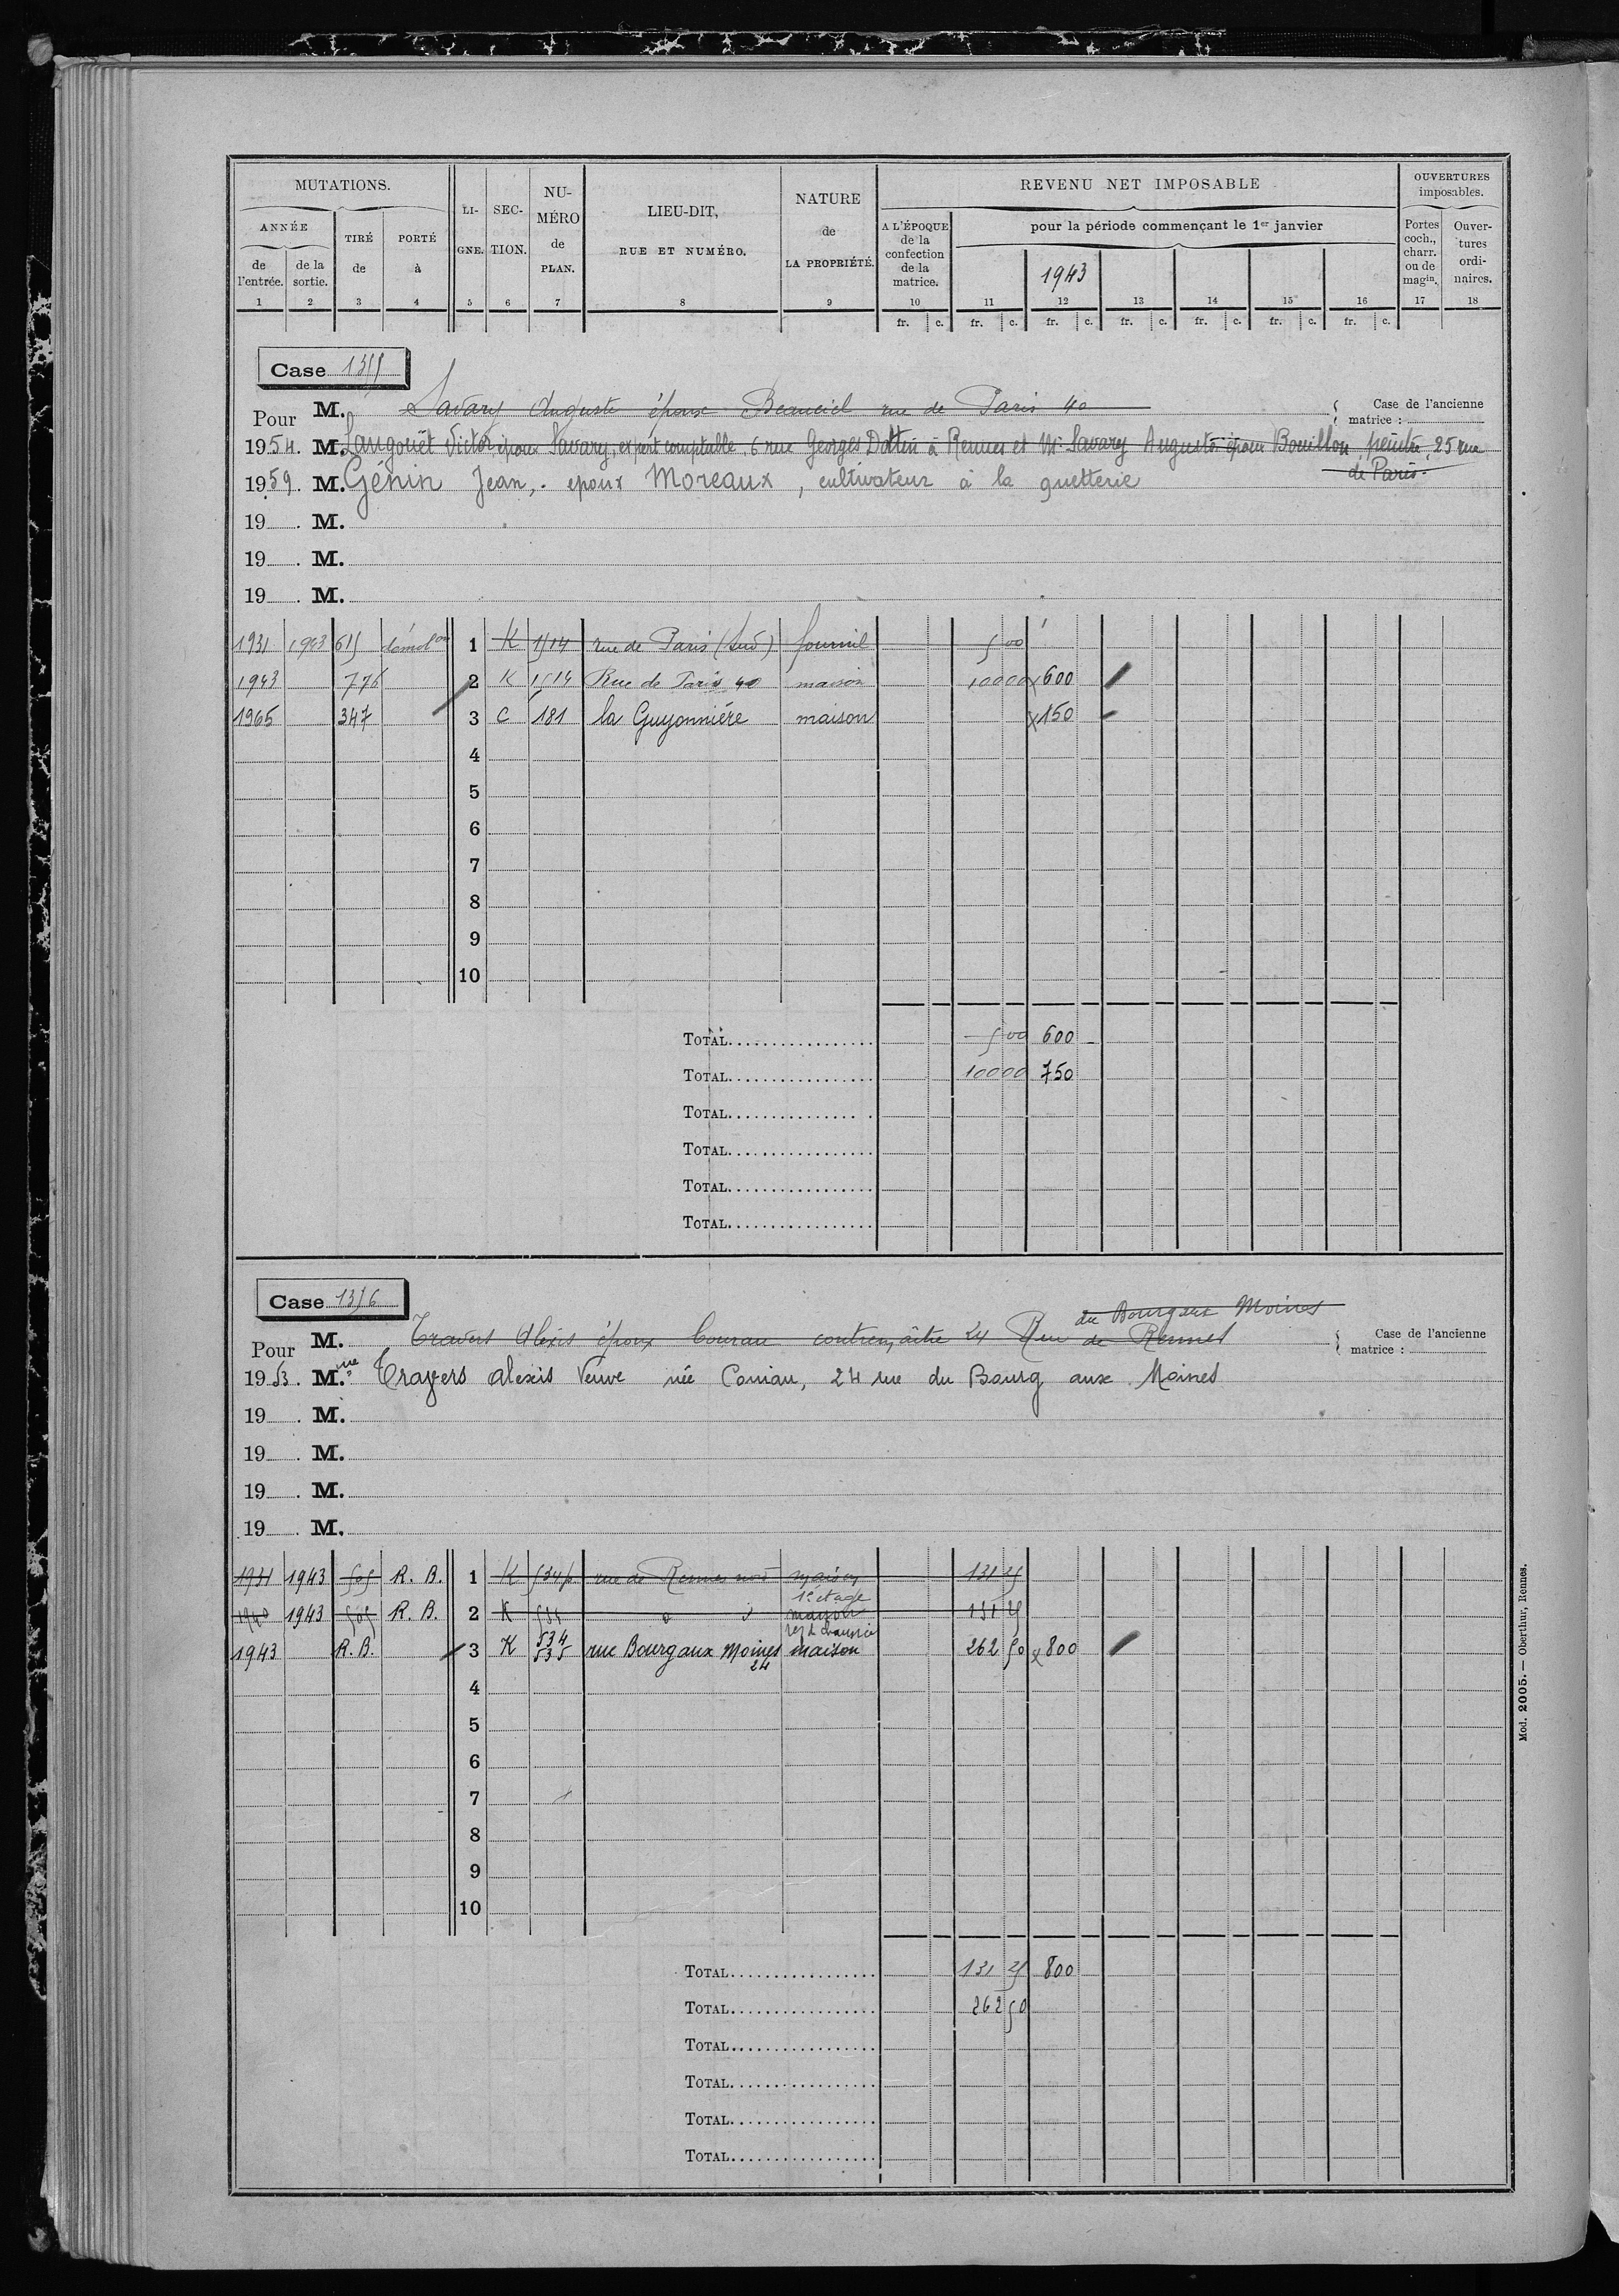 MUTATIONS.
ANNÉE
de l'entrée.
de la sortie.
TIRÉ de
PORTÉ à
LIGNE.
SECTION.
NUMÉRO de PLAN.
LIEU-DIT, RUE ET NUMÉRO.
NATURE de LA PROPRIÉTÉ.
REVENU NET IMPOSABLE
A L'ÉPOQUE de la confection de la matrice.
pour la période commençant le 1er janvier
1943
OUVERTURES imposables.
Portes coch., charr. ou de magin.
Ouvertures ordinaires.
1 2 3 4 5 6 7 8 9 10 11 12 13 14 15 16 17 18
fr. c. fr. c. fr. c. fr. c. fr. c. fr. c. fr. c.
Case 1355
Pour M. Savary Auguste époux rue de Paris 40
Case de l'ancienne matrice :
1954. M. Langouët Victor époux Savary, expert comptable, 6 rue Georges Dottin à Rennes et Mr Savary Auguste époux Bouillon, peintre, 25 rue
de Paris.
1959. M. Génin Jean, époux Moreaux, cultivateur à la guetterie
19 . M.
19 . M.
19 . M.
1931 1943 615 démolon 1 K 1514 rue de Paris (Sud) fournil 500
1943 776 2 K 1514 Rue de Paris 40 maison 10000 x600
1965 347 3 C 181 la Guyonnière maison x150
4
5
6
7
8
9
10
TOTAL 500 600
TOTAL 10000 750
TOTAL
TOTAL
TOTAL
TOTAL
Case 1356
du Bourg aux Moines
Pour M. Travers Alexis époux contremaître 24 Rue de Rennes
Case de l'ancienne matrice :
1953. Mme Travers Alexis Veuve née 24 rue du Bourg aux Moines
19 . M.
19 . M.
19 . M.
19 . M.
1931 1943 505 R. B. 1 K 534p rue de Rennes nord maison 131 25
1er étage
1940 1943 505 R. B. 2 K maison 131 25
rez de chaussée
1943 R. B. 3 K 534 535 rue Bourg aux Moines 24 maison 262 50 x800
4
5
6
7
8
9
10
TOTAL 131 25 800
TOTAL 262 50
TOTAL
TOTAL
TOTAL
TOTAL
Mod. 2005. — Oberthur, Rennes.